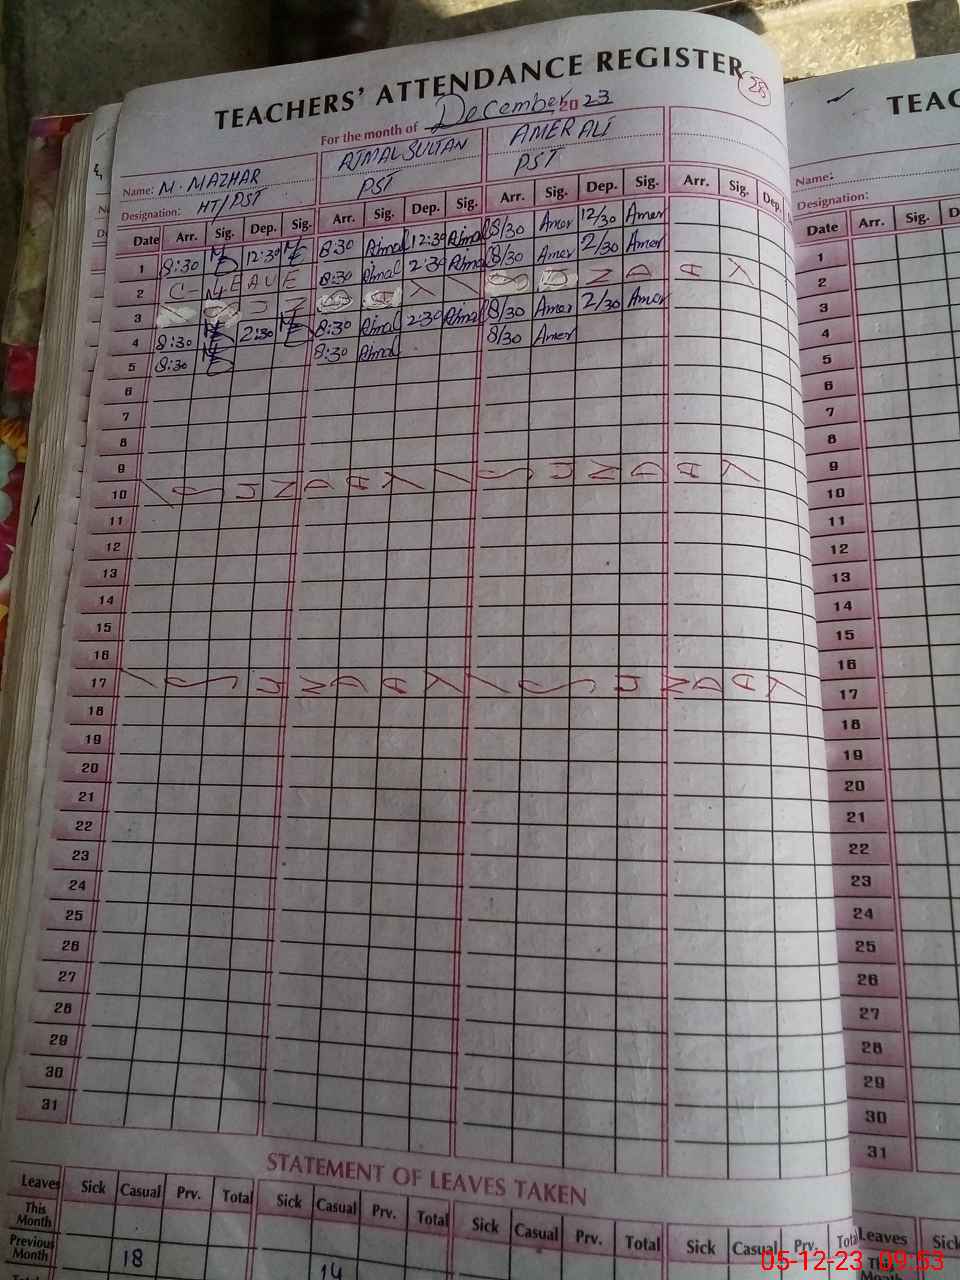 TEACHERS' ATTENDANCE REGISTER
28
For the month of December 2023
Name: M. MAZHAR AJMAL SULTAN AMER ALI
Designation: HT/PST PST PST
Date Arr. Sig. Dep. Sig. Arr. Sig. Dep. Sig. Arr. Sig. Dep. Sig. Arr. Sig. Dep.
1 8:30 12:30 8:30 Ajmal 12:30 Ajmal 8/30 Amer 12/30 Amer
2 C-LEAVE 8:30 Ajmal 2:30 Ajmal 8/30 Amer 2/30 Amer
3 / S U N D A Y / S U N D A Y
4 8:30 2:30 8:30 Ajmal 2:30 Ajmal 8/30 Amer 2/30 Amer
5 8:30 8:30 Ajmal 8/30 Amer
6
7
8
9
10 / S U N D A Y / S U N D A Y
11
12
13
14
15
16
17 / S U N D A Y / S U N D A Y
18
19
20
21
22
23
24
25
26
27
28
29
30
31
STATEMENT OF LEAVES TAKEN
Leaves Sick Casual Prv. Total Sick Casual Prv. Total Sick Casual Prv. Total Sick Casual Prv. Total
This Month
Previous Month 18 14
TEAC
Name:
Designation:
Date Arr. Sig. D
1
2
3
4
5
6
7
8
9
10
11
12
13
14
15
16
17
18
19
20
21
22
23
24
25
26
27
28
29
30
31
Leaves Sick
05-12-23 09:53